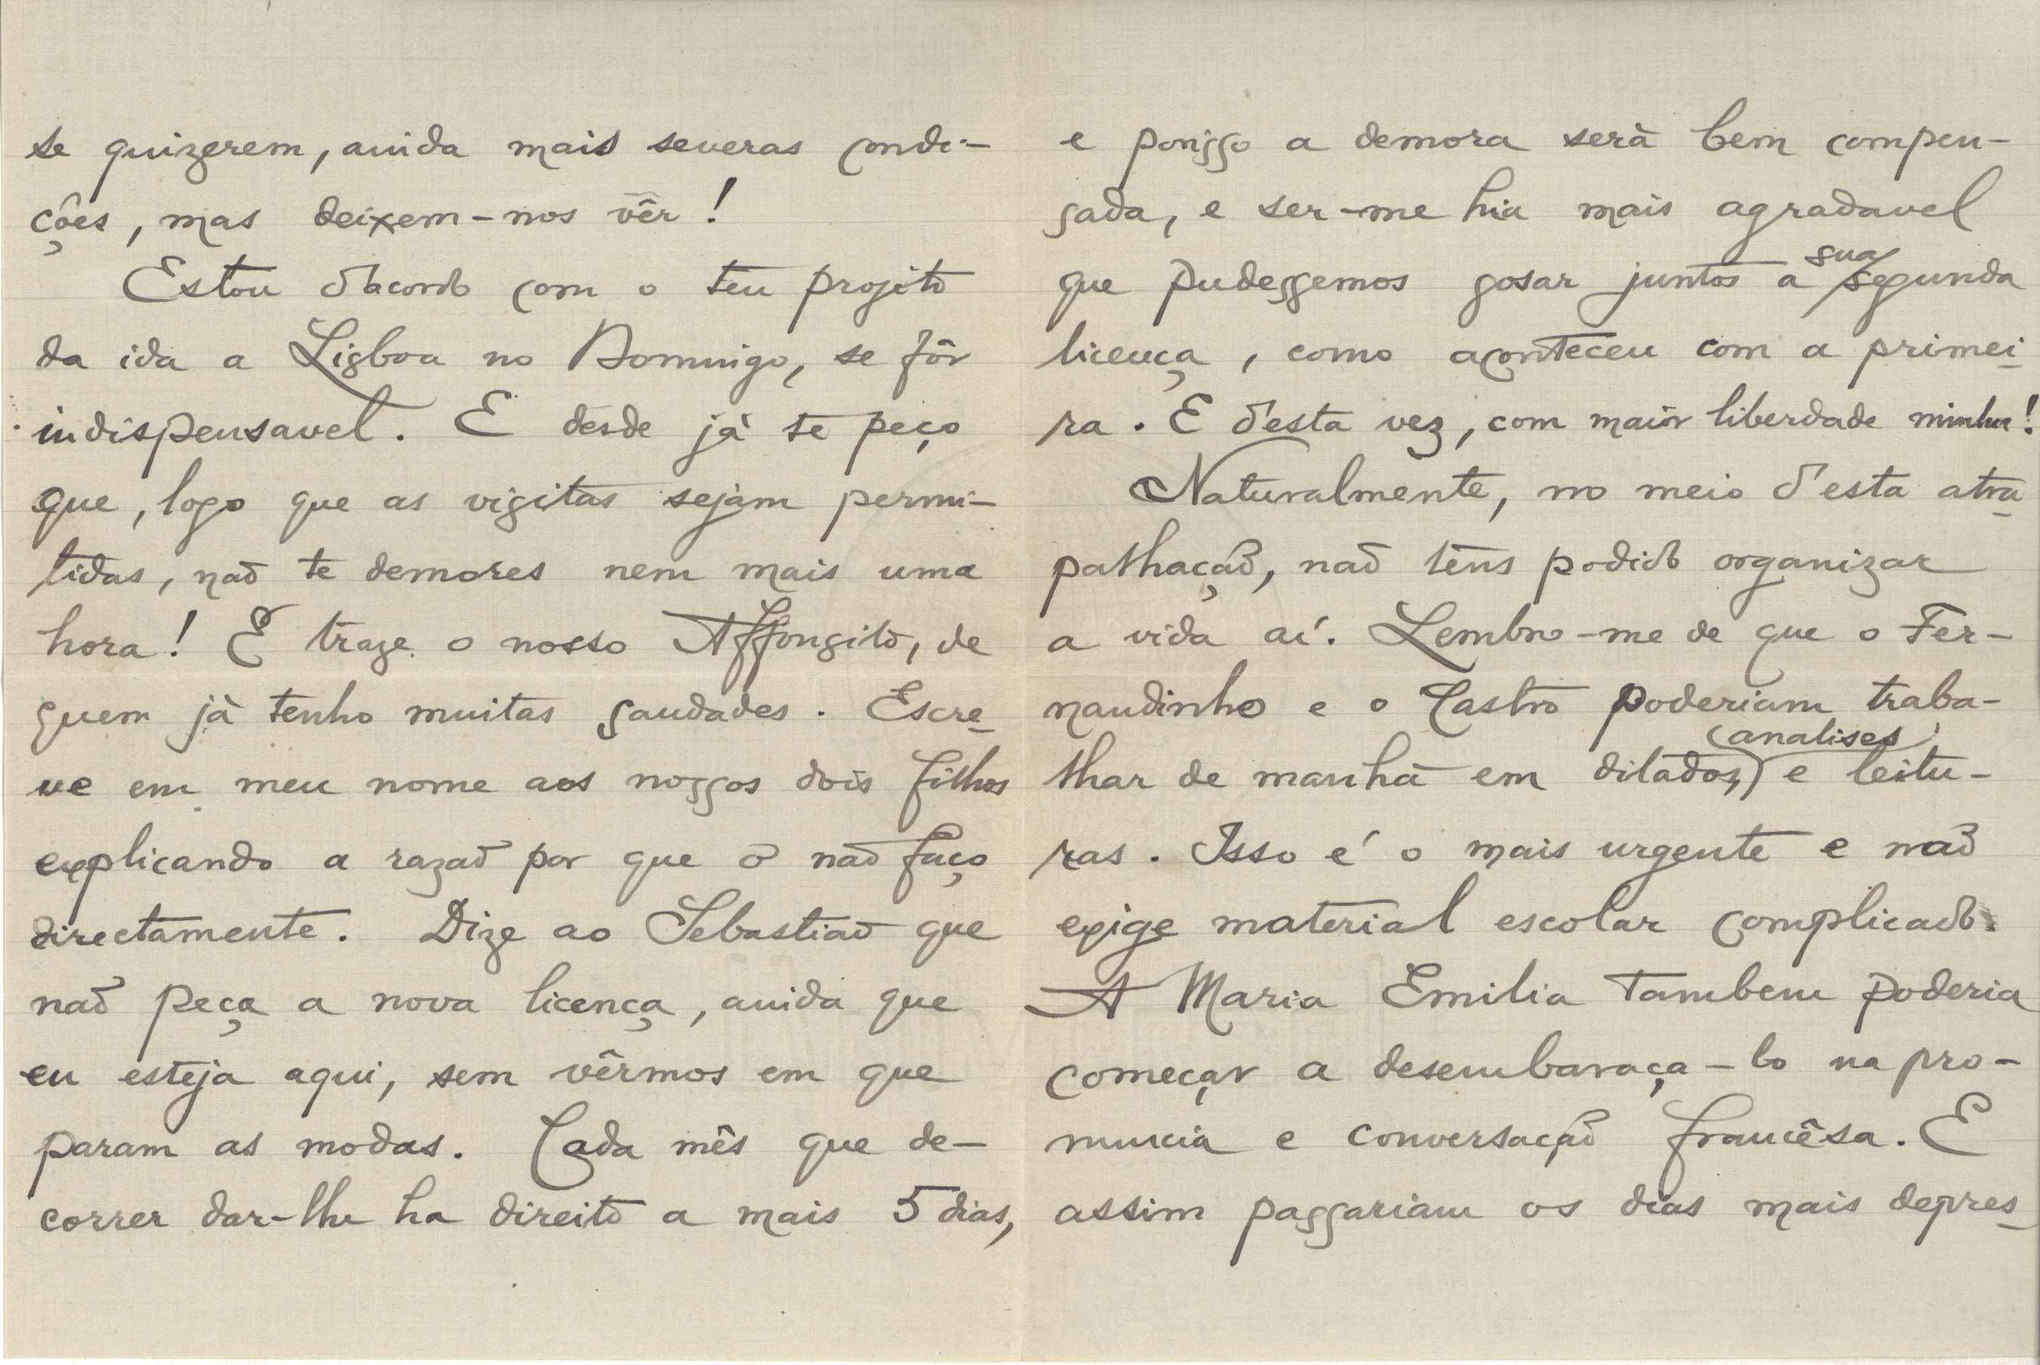 se quizerem, ainda mais severas condi-
ções, mas deixem-nos vêr!
Estou d'acordo com o teu projéto
da ida a Lisboa no Domingo, se fôr
indispensavel. E desde já te peço
que, logo que as visitas sejam permi-
tidas, não te demores nem mais uma
hora! E traze o nosso Affonsito, de
quem já tenho muitas saudades. Escre-
ve em meu nome aos nossos dois filhos
explicando a razão por que o não faço
directamente. Dize ao Sebastião que
não peça a nova licença, ainda que
eu esteja aqui, sem vêrmos em que
param as modas. Cada mês que de-
correr dar-lhe ha direito a mais 5 dias,
e porisso a demora será bem compen-
sada, e ser-me hia mais agradavel
que pudessemos gosar juntos a sua segunda
licença, como aconteceu com a primei-
ra. E d'esta vez, com maior liberdade minha!
Naturalmente, no meio d'esta atra-
palhação, não tens podido organizar
a vida aí. Lembro-me de que o Fer-
nandinho e o Castro poderiam traba-
lhar de manhã em ditados, (analises) e leitu-
ras. Isso é o mais urgente e não
exige material escolar complicado.
A Maria Emilia tambem poderia
começar a desembaraça-lo na pro-
nuncia e conversação francêsa. E
assim passariam os dias mais depres-